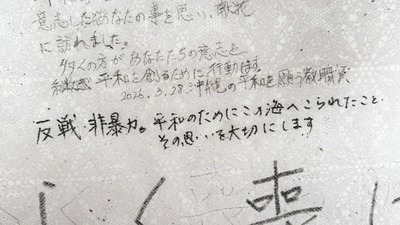 意志したあなたの事を思い、献花
に訪れました。
多くの方があなたたちの意志を
継ぎ 平和を創るために行動します
2026.3.28 沖縄の平和を願う教職員
反戦・非暴力。平和のためにこの海へこられたこと、
その思いを大切にします
喪